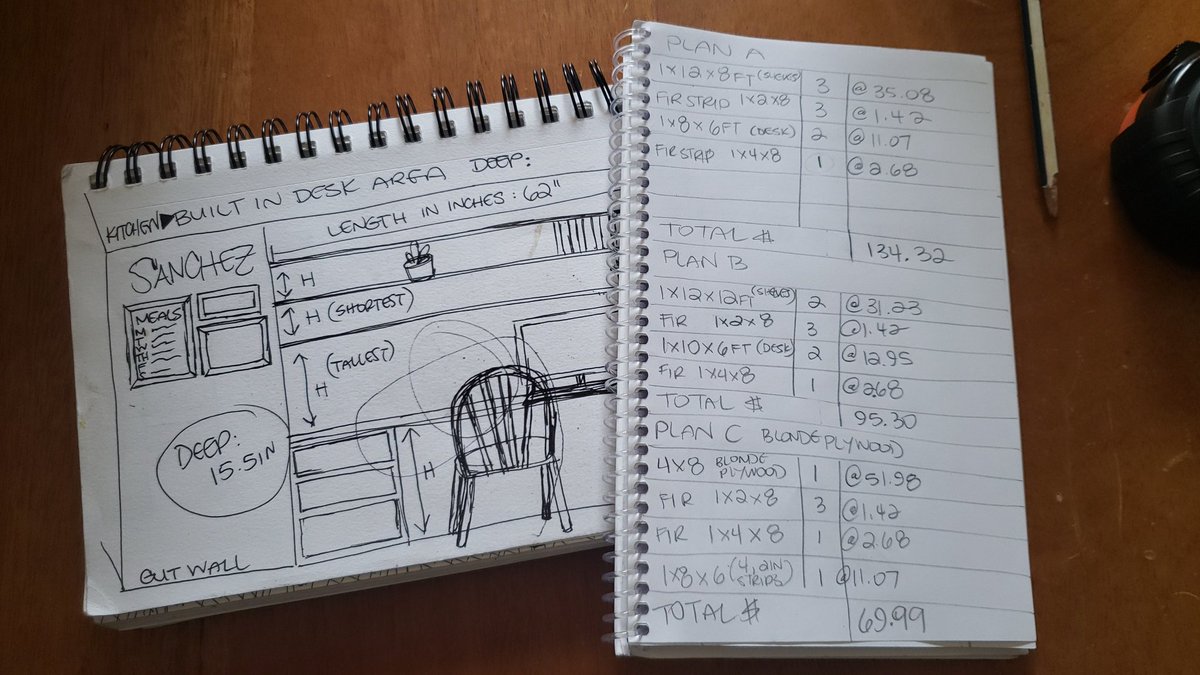 KITCHEN▶BUILT IN DESK AREA DEEP:
LENGTH IN INCHES: 62"
SANCHEZ
MEALS
H
H (SHORTEST)
(TALLEST)
H
DEEP:
15.5IN
H
GUT WALL
PLAN A
1X12X8FT (SHELVES) 3 @35.08
FIR STRIP 1X2X8 3 @1.42
1X8X6FT (DESK) 2 @11.07
FIR STRIP 1X4X8 1 @2.68
TOTAL $ 134.32
PLAN B
1X12X12FT (SHELVES) 2 @31.23
FIR 1X2X8 3 @1.42
1X10X6FT (DESK) 2 @12.95
FIR 1X4X8 1 @2.68
TOTAL $ 95.30
PLAN C BLONDE PLYWOOD
4X8 BLONDE PLYWOOD 1 @51.98
FIR 1X2X8 3 @1.42
FIR 1X4X8 1 @2.68
1X8X6 (4, 2IN STRIPS) 1 @11.07
TOTAL $ 69.99